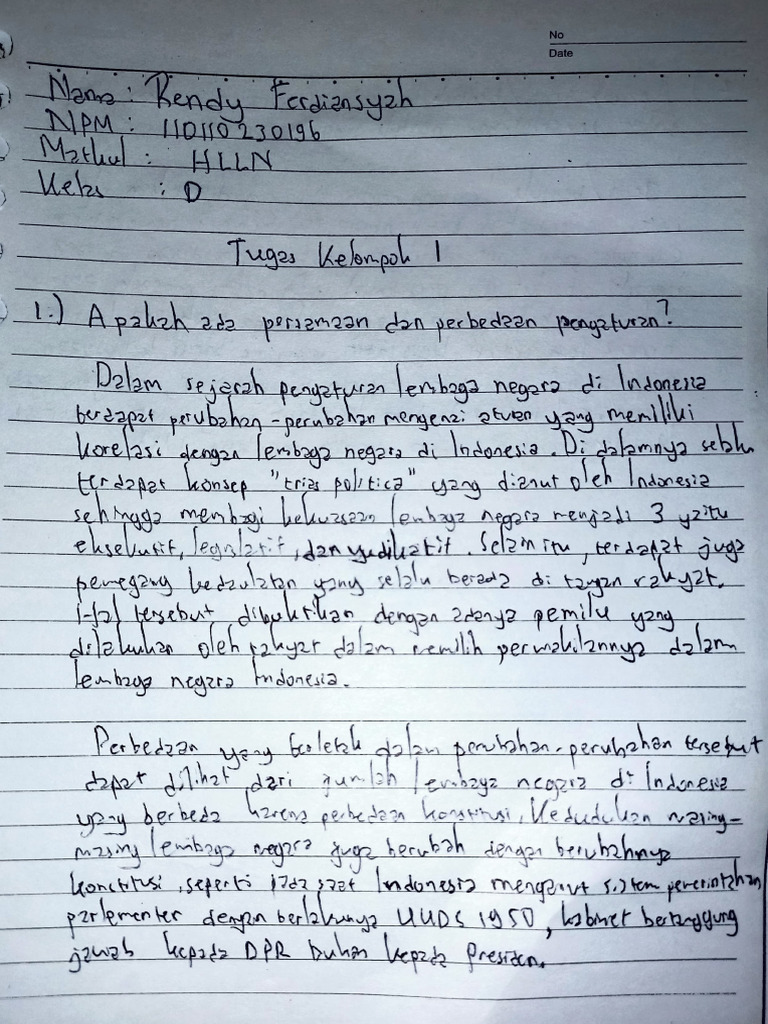 No
Date
Nama : Rendy Ferdiansyah
NPM : 110110230196
Matkul : HLLN
Kelas : D
Tugas Kelompok 1
1.) Apakah ada persamaan dan perbedaan pengaturan?
Dalam sejarah pengaturan lembaga negara di Indonesia
terdapat perubahan-perubahan mengenai aturan yang memiliki
korelasi dengan lembaga negara di Indonesia. Di dalamnya selalu
terdapat konsep "trias politica" yang dianut oleh Indonesia
sehingga membagi kekuasaan lembaga negara menjadi 3 yaitu
eksekutif, legislatif, dan yudikatif. Selain itu, terdapat juga
pemegang kedaulatan yang selalu berada di tangan rakyat.
Hal tersebut dibuktikan dengan adanya pemilu yang
dilakukan oleh rakyat dalam memilih perwakilannya dalam
lembaga negara Indonesia.
Perbedaan yang terletak dalam perubahan-perubahan tersebut
dapat dilihat dari jumlah lembaga negara di Indonesia
yang berbeda karena perbedaan konstitusi. Kedudukan masing-
masing lembaga negara juga berubah dengan berubahnya
konstitusi, seperti pada saat Indonesia menganut sistem pemerintahan
parlementer dengan berlakunya UUDS 1950, kabinet bertanggung
jawab kepada DPR bukan kepada Presiden.